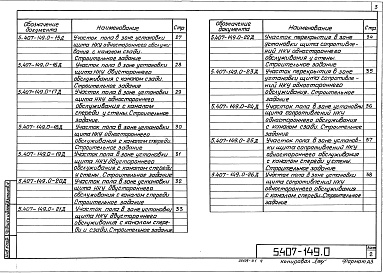 3
Обозначение документа
Наименование
Стр
5.407-149.0-15Д
Участок пола в зоне установки
щита НКУ одностороннего обслужи-
вания с каналом сзади.
Строительное задание
27
5.407-149.0-16Д
Участок пола в зоне установки
щита НКУ двустороннего
обслуживания с каналом сзади.
Строительное задание
28
5.407-149.0-17Д
Участок пола в зоне установки
щита НКУ одностороннего
обслуживания с каналом
спереди у стены. Строительное
задание
29
5.407-149.0-18Д
Участок пола в зоне установки
щита НКУ одностороннего
обслуживания с каналом сзади.
Строительное задание
30
5.407-149.0-19Д
Участок пола в зоне установки
щита НКУ двустороннего
обслуживания с каналом спереди
у стены. Строительное задание
31
5.407-149.0-20Д
Участок пола в зоне установки
щита НКУ двустороннего
обслуживания с каналом сзади.
Строительное задание
32
5.407-149.0-21Д
Участок пола в зоне установки
щита НКУ двустороннего
обслуживания с каналом спере-
ди и сзади. Строительное задание
33
Обозначение документа
Наименование
Стр
5.407-149.0-22Д
Участок перекрытия в зоне
установки щита сопротивле-
ний НКУ одностороннего
обслуживания у стены.
Строительное задание
34
5.407-149.0-23Д
Участок перекрытия в зоне
установки щита сопротивле-
ний НКУ одностороннего
обслуживания. Строительное
задание
35
5.407-149.0-24Д
Участок пола в зоне установки
щита сопротивлений НКУ
одностороннего обслуживания
с каналом сзади. Строительное
задание
36
5.407-149.0-25Д
Участок пола в зоне установки
щита сопротивлений НКУ
одностороннего обслуживания
с каналом спереди у стены.
Строительное задание
37
5.407-149.0-26Д
Участок пола в зоне установки
щита сопротивлений НКУ
одностороннего обслуживания
с каналом спереди. Строительное
задание
38
5.407-149.0
Лист
2
Копировал
Формат А3